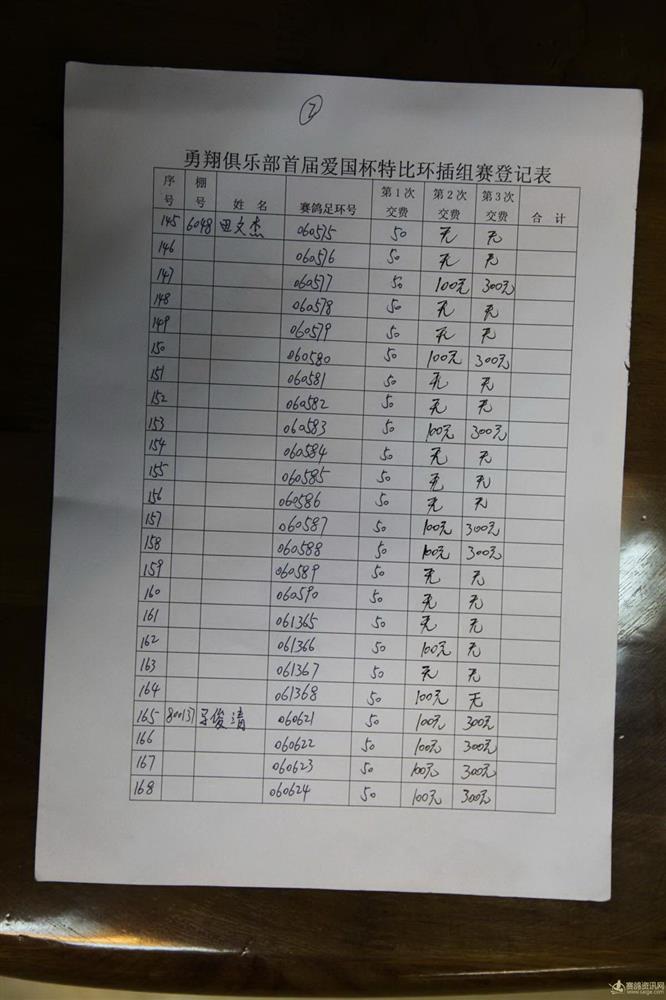 ⑦
勇翔俱乐部首届爱国杯特比环插组赛登记表
序号 棚号 姓 名 赛鸽足环号 第1次交费 第2次交费 第3次交费 合 计
145 6048 田文杰 060575 50 无 无
146 060576 50 无 无
147 060577 50 100元 300元
148 060578 50 无 无
149 060579 50 无 无
150 060580 50 100元 300元
151 060581 50 无 无
152 060582 50 无 无
153 060583 50 100元 300元
154 060584 50 无 无
155 060585 50 无 无
156 060586 50 无 无
157 060587 50 100元 300元
158 060588 50 100元 300元
159 060589 50 无 无
160 060590 50 无 无
161 061365 50 无 无
162 061366 50 100元 无
163 061367 50 无 无
164 061368 50 100元 无
165 800137 俊清 060621 50 100元 300元
166 060622 50 100元 300元
167 060623 50 100元 300元
168 060624 50 100元 300元
赛鸽资讯网